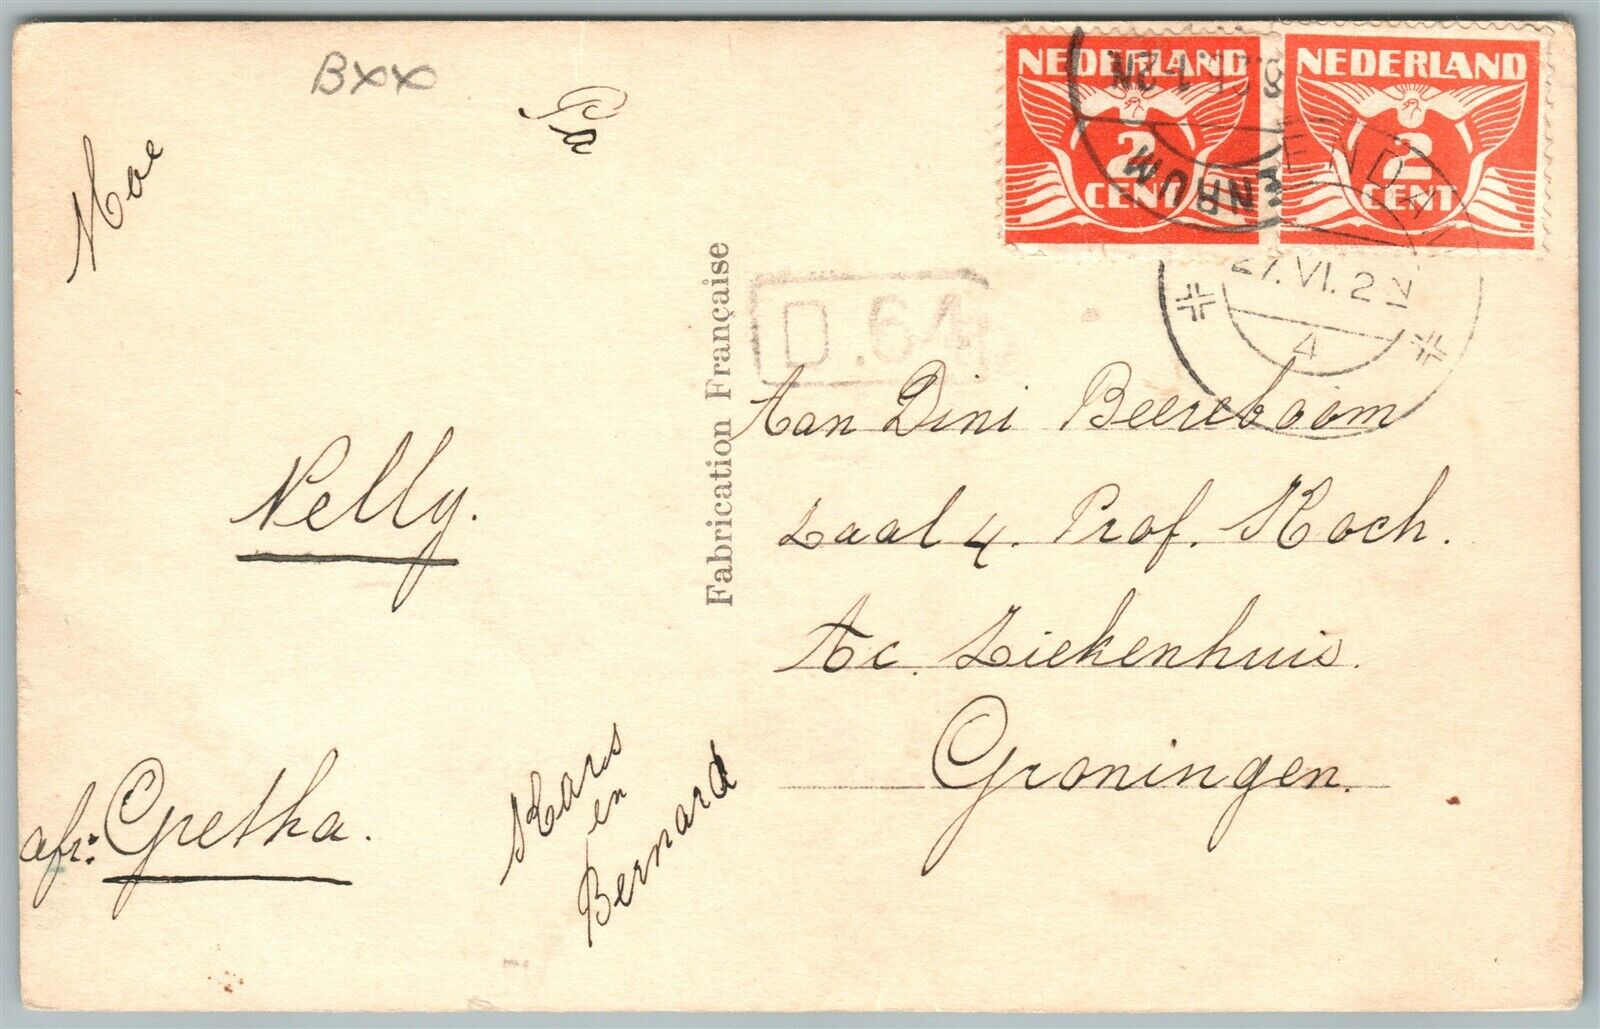 Bxx
Pa
Moe
Nelly.
afz: Gretha.
Kars
en
Bernard
Fabrication Française
NEDERLAND
2
CENT
NEDERLAND
2
CENT
27.VI.2
4
D.64
Aan Dini Beereboom
Zaal 4. Prof. Koch.
Ac. Ziekenhuis.
Groningen.